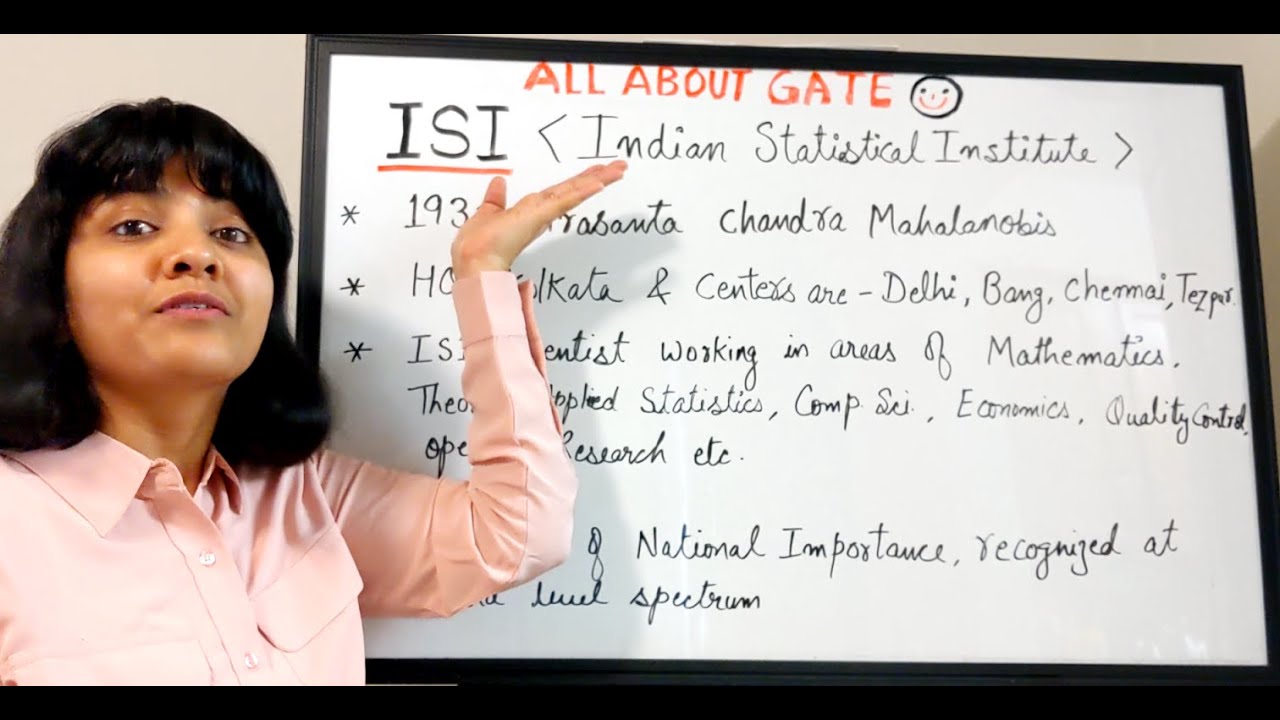 ALL ABOUT GATE
ISI < Indian Statistical Institute >
* 193 rasanta Chandra Mahalanobis
* HO lkata & Centers are - Delhi, Bang, Chennai, Tezpur.
* ISI entist working in areas of Mathematics.
Theo pplied Statistics, Comp. Sci., Economics, Quality Control,
ope Research etc.
of National Importance, recognized at
level spectrum